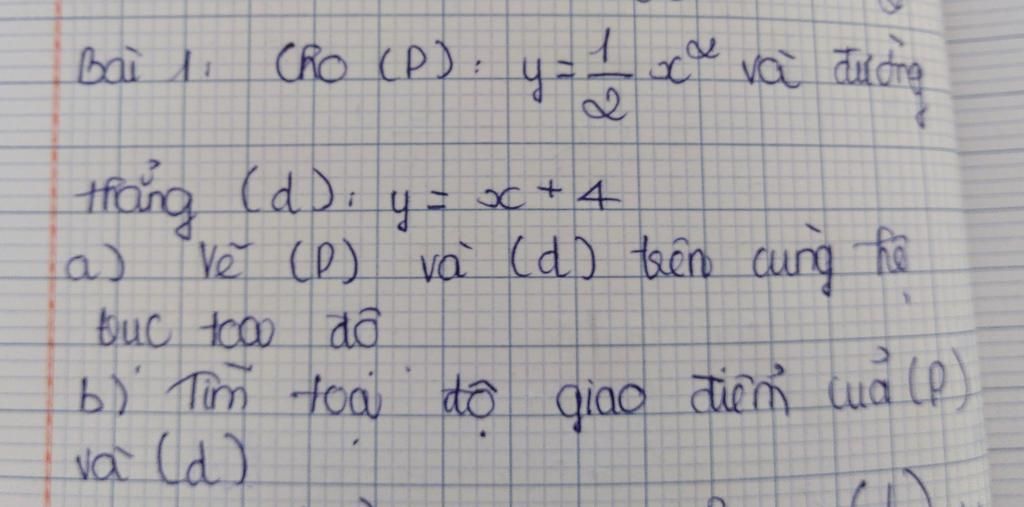 Bài 1: Cho (P): y = 1/2 x² và đường
thẳng (d): y = x + 4
a) Vẽ (P) và (d) trên cùng hệ
trục toạ độ
b) Tìm toạ độ giao điểm của (P)
và (d)